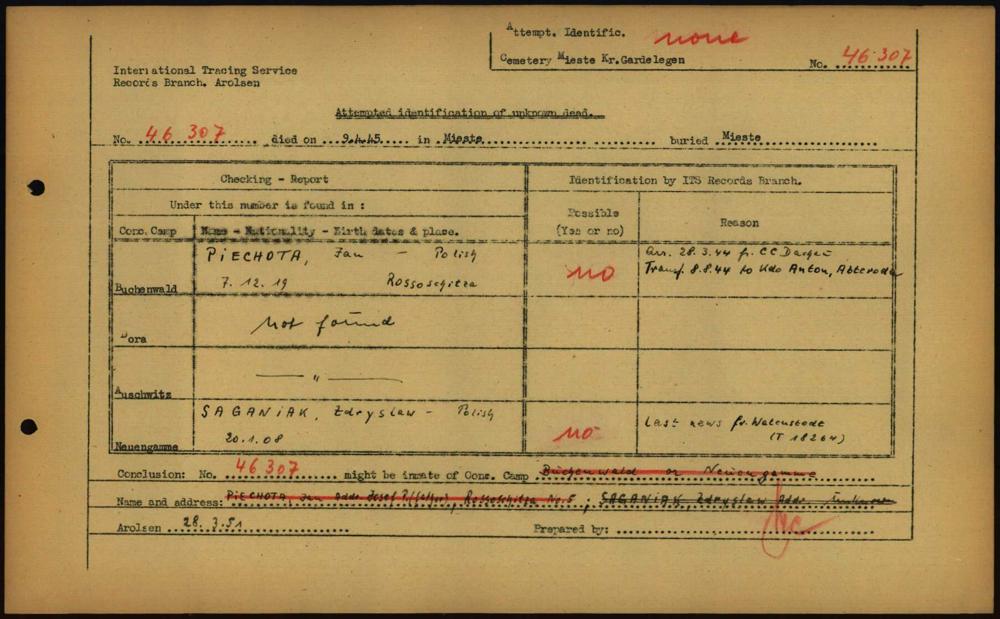 Attempt. Identific. none
Cemetery Mieste Kr.Gardelegen
No. 46 307
International Tracing Service
Records Branch. Arolsen
Attempted identification of unknown dead.
No. 46 307 died on 9.4.45 in Mieste buried Mieste
Checking - Report
Identification by ITS Records Branch.
Under this number is found in :
Possible
(Yes or no)
Reason
Conc. Camp
Name - Nationality - Birth dates & place.
Buchenwald
PIECHOTA, Jan - Polish
7.12.19 Rossoschitza
no
arr. 28.3.44 fr. CC Dachau
Transf. 8.8.44 to Kdo Anton, Abteroda
Dora
Not found
Auschwitz
— " —
Neuengamme
SAGANIAK, Zdryslaw - Polish
20.1.08
no
Last news fr. Watenstedt
(T 18264)
Conclusion: No. 46 307 might be inmate of Conc. Camp Buchenwald or Neuengamme
Name and address: PIECHOTA, Jan addr. Josef P. (father), Rossoschitza Nr. 5, SAGANIAK, Zdryslaw Addr.
Arolsen 28.3.51
Prepared by: